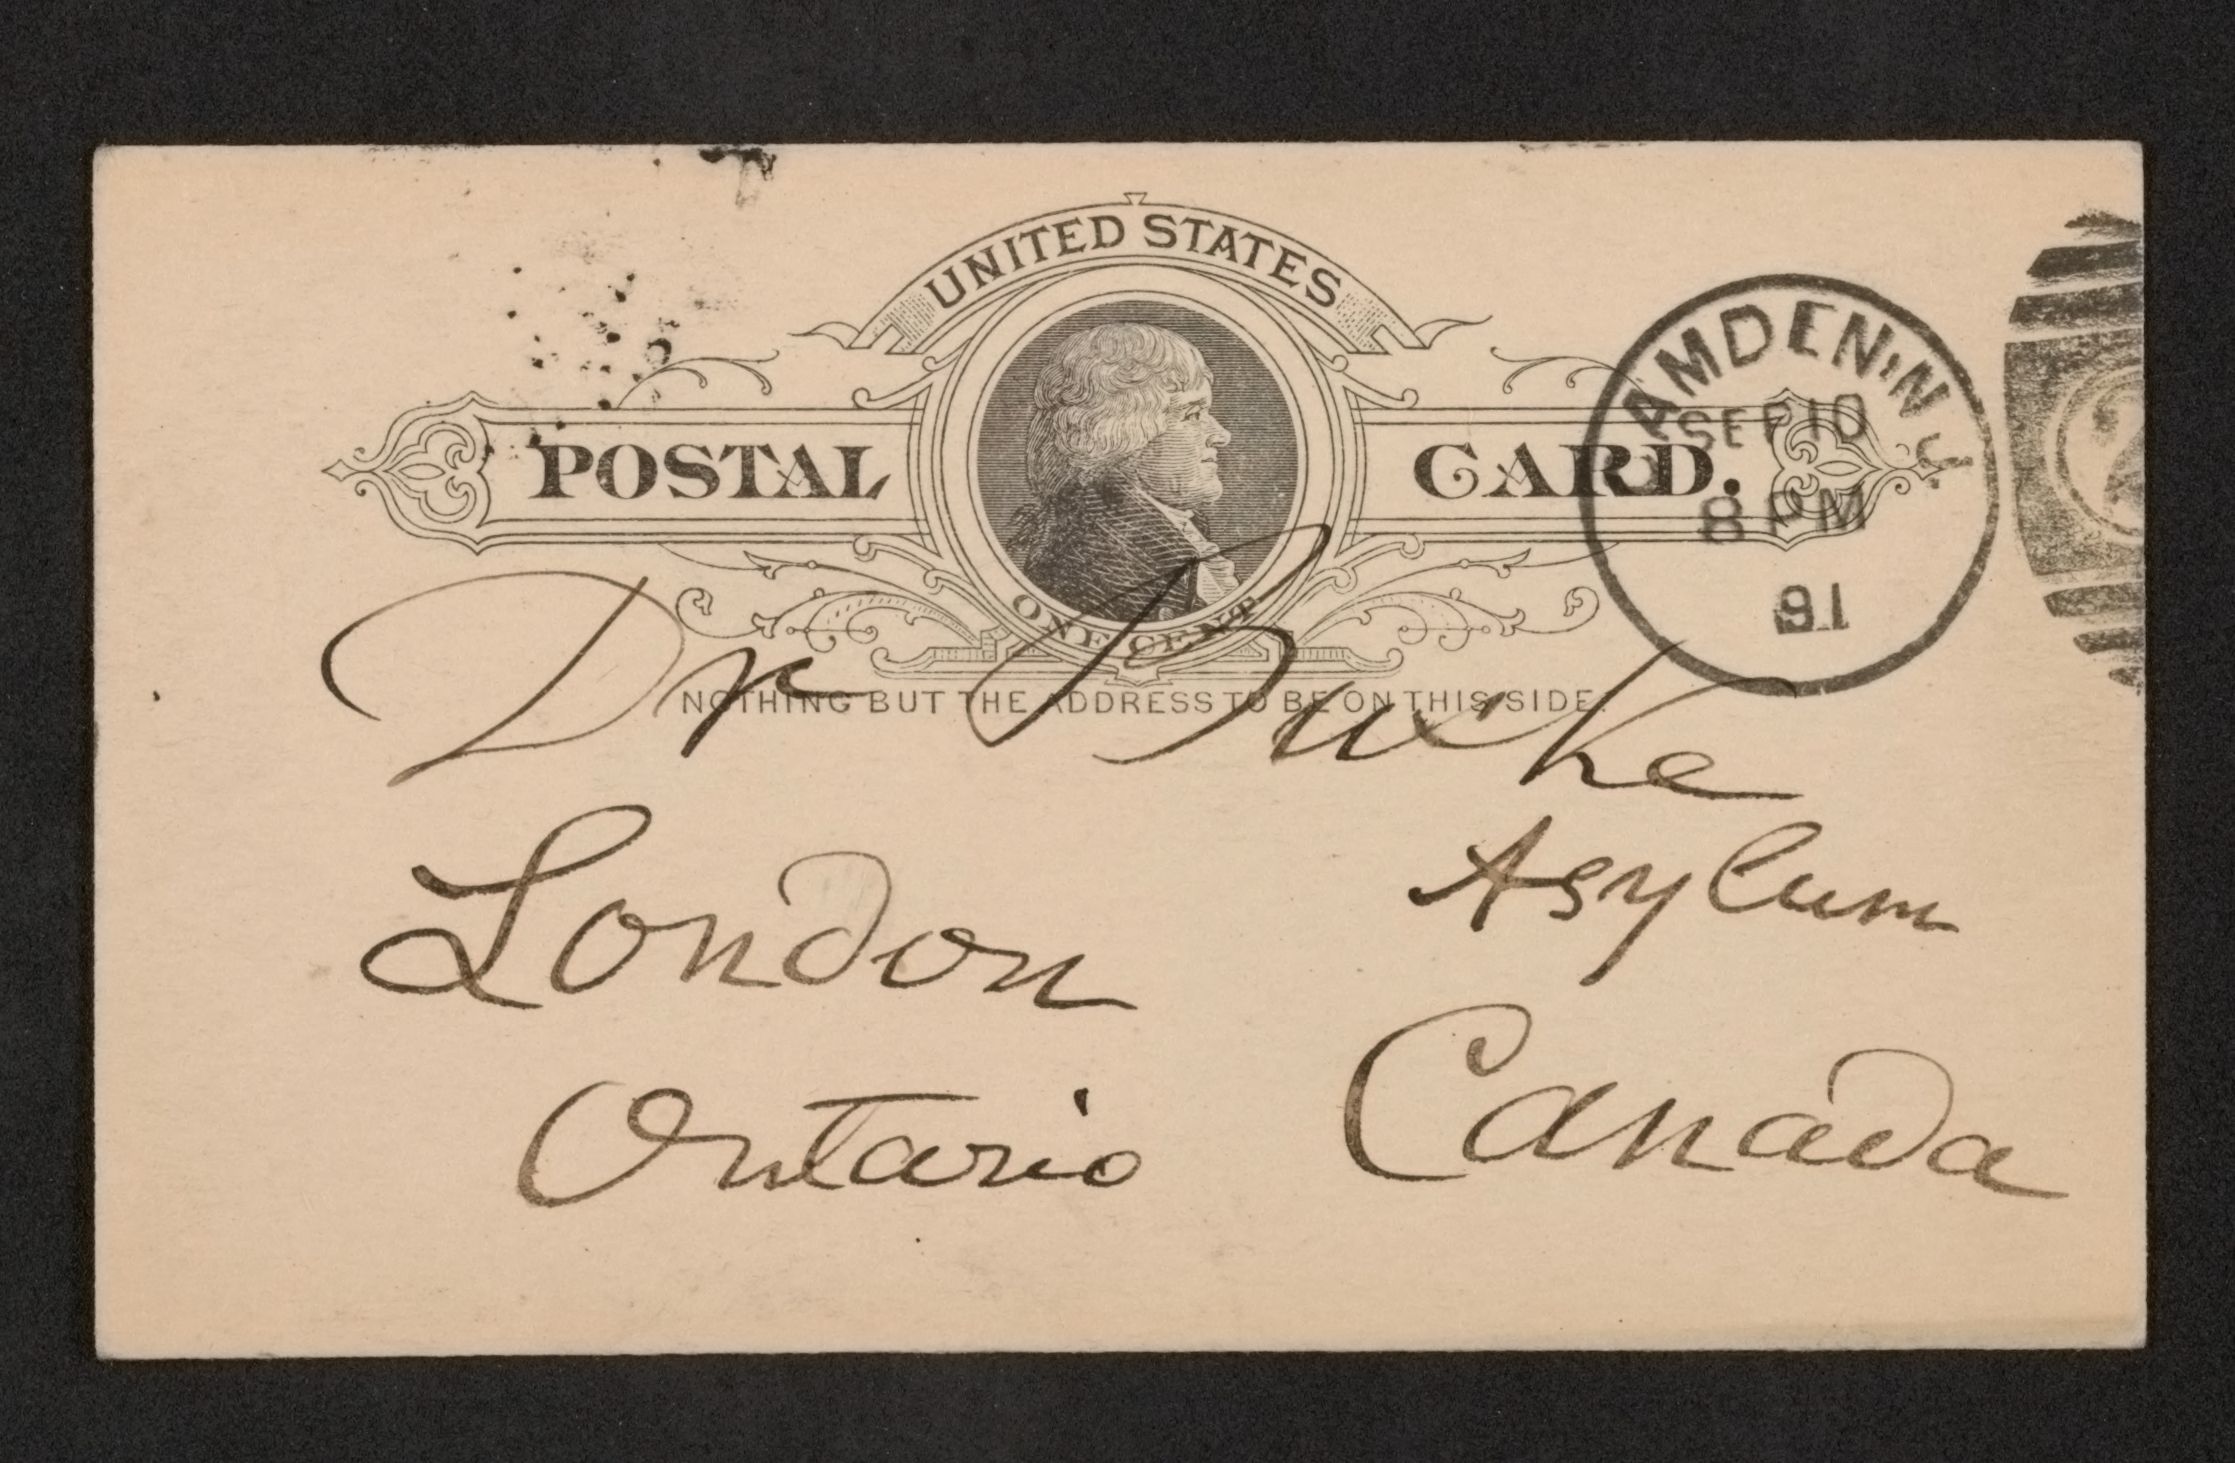 UNITED STATES
POSTAL CARD.
ONE CENT
NOTHING BUT THE ADDRESS TO BE ON THIS SIDE.
AMDEN. N.J.
SEP 10
8 PM
91
2
Dr Bucke
Asylum
London
Ontario Canada